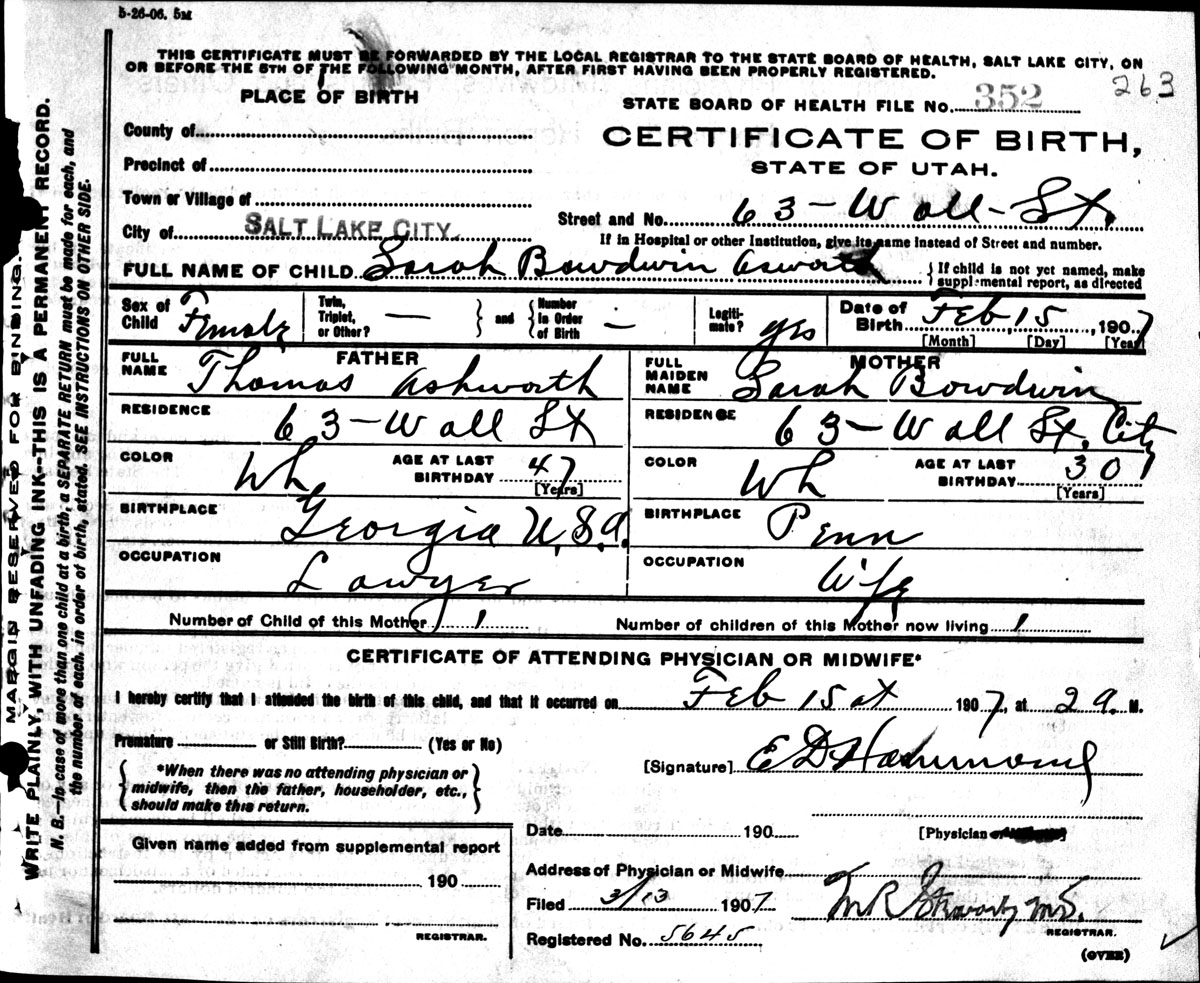 5-26-06. 5M
THIS CERTIFICATE MUST BE FORWARDED BY THE LOCAL REGISTRAR TO THE STATE BOARD OF HEALTH, SALT LAKE CITY, ON
OR BEFORE THE 5TH OF THE FOLLOWING MONTH, AFTER FIRST HAVING BEEN PROPERLY REGISTERED.
263
PLACE OF BIRTH
STATE BOARD OF HEALTH FILE NO. 352
County of
CERTIFICATE OF BIRTH,
Precinct of
STATE OF UTAH.
Town or Village of
Street and No. 63-Wall-St.
City of SALT LAKE CITY.
If in Hospital or other Institution, give its name instead of Street and number.
FULL NAME OF CHILD Sarah Bowdwin asworth
{ If child is not yet named, make
supplemental report, as directed
Sex of Child Female
Twin, Triplet, or Other? —
} and {
Number in Order of Birth —
Legiti-mate? yes
Date of Birth Feb 15, 1907
[Month] [Day] [Year]
FATHER
FULL NAME Thomas Ashworth
RESIDENCE 63-Wall St
COLOR Wh
AGE AT LAST BIRTHDAY 47
[Years]
BIRTHPLACE Georgia U.S.A.
OCCUPATION Lawyer
MOTHER
FULL MAIDEN NAME Sarah Bowdwin
RESIDENCE 63-Wall St. City
COLOR Wh
AGE AT LAST BIRTHDAY 30
[Years]
BIRTHPLACE Penn
OCCUPATION Wife
Number of Child of this Mother 1
Number of children of this Mother now living 1
CERTIFICATE OF ATTENDING PHYSICIAN OR MIDWIFE*
I hereby certify that I attended the birth of this child, and that it occurred on Feb 15 at 1907, at 2 a. M.
Premature or Still Birth? (Yes or No)
[Signature] E D Hammond
{ *When there was no attending physician or
midwife, then the father, householder, etc.,
should make this return. }
Date 190
[Physician or
Given name added from supplemental report
190
REGISTRAR.
Address of Physician or Midwife
Filed 3/13 1907
M.D.
REGISTRAR.
Registered No. 5645
(OVER)
MARGIN RESERVED FOR BINDING.
WRITE PLAINLY, WITH UNFADING INK--THIS IS A PERMANENT RECORD.
N. B.—In case of more than one child at a birth, a SEPARATE RETURN must be made for each, and
the number of each, in order of birth, stated. SEE INSTRUCTIONS ON OTHER SIDE.